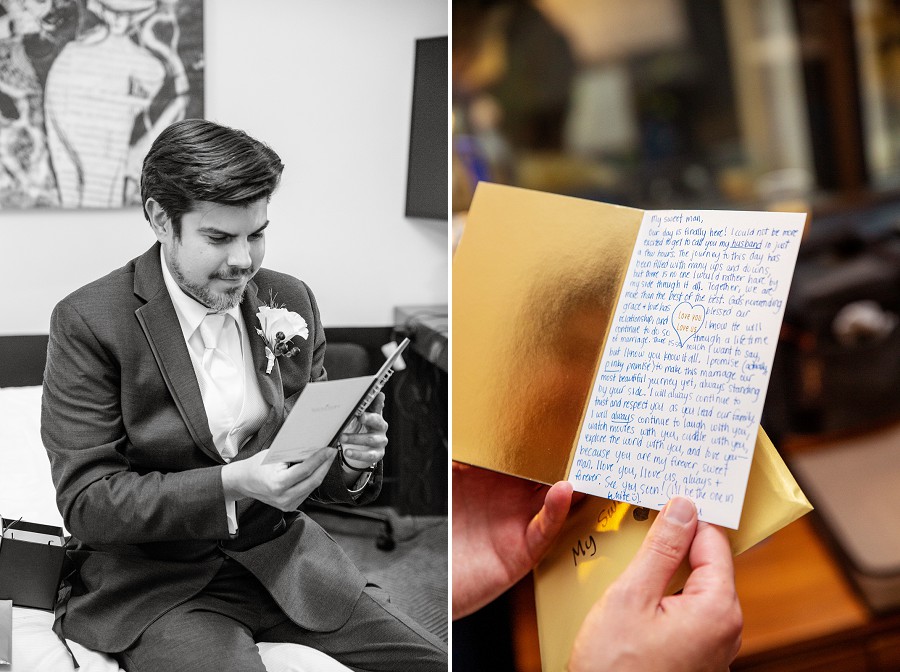 My sweet man,
Our day is finally here! I could not be more
excited to get to call you my husband in just
a few hours. The journey to this day has
been filled with many ups and downs,
but there is no one I would rather have by
my side through it all. Together, we are
more than the best of the best. God's neverending
grace + love has blessed our
relationship, and I know He will
continue to do so through a lifetime
love you
love us
of marriage. There is so much I want to say,
but I know you know it all. I promise (actually,
pinky promise) to make this marriage our
most beautiful journey yet, always standing
by your side. I will always continue to
trust and respect you as you lead our family.
I will always continue to laugh with you,
watch movies with you, cuddle with you,
explore the world with you, and love you
because you are my forever, sweet
man. I love you, I love us, always +
forever. See you soon! (I'll be the one in
white☺).
My